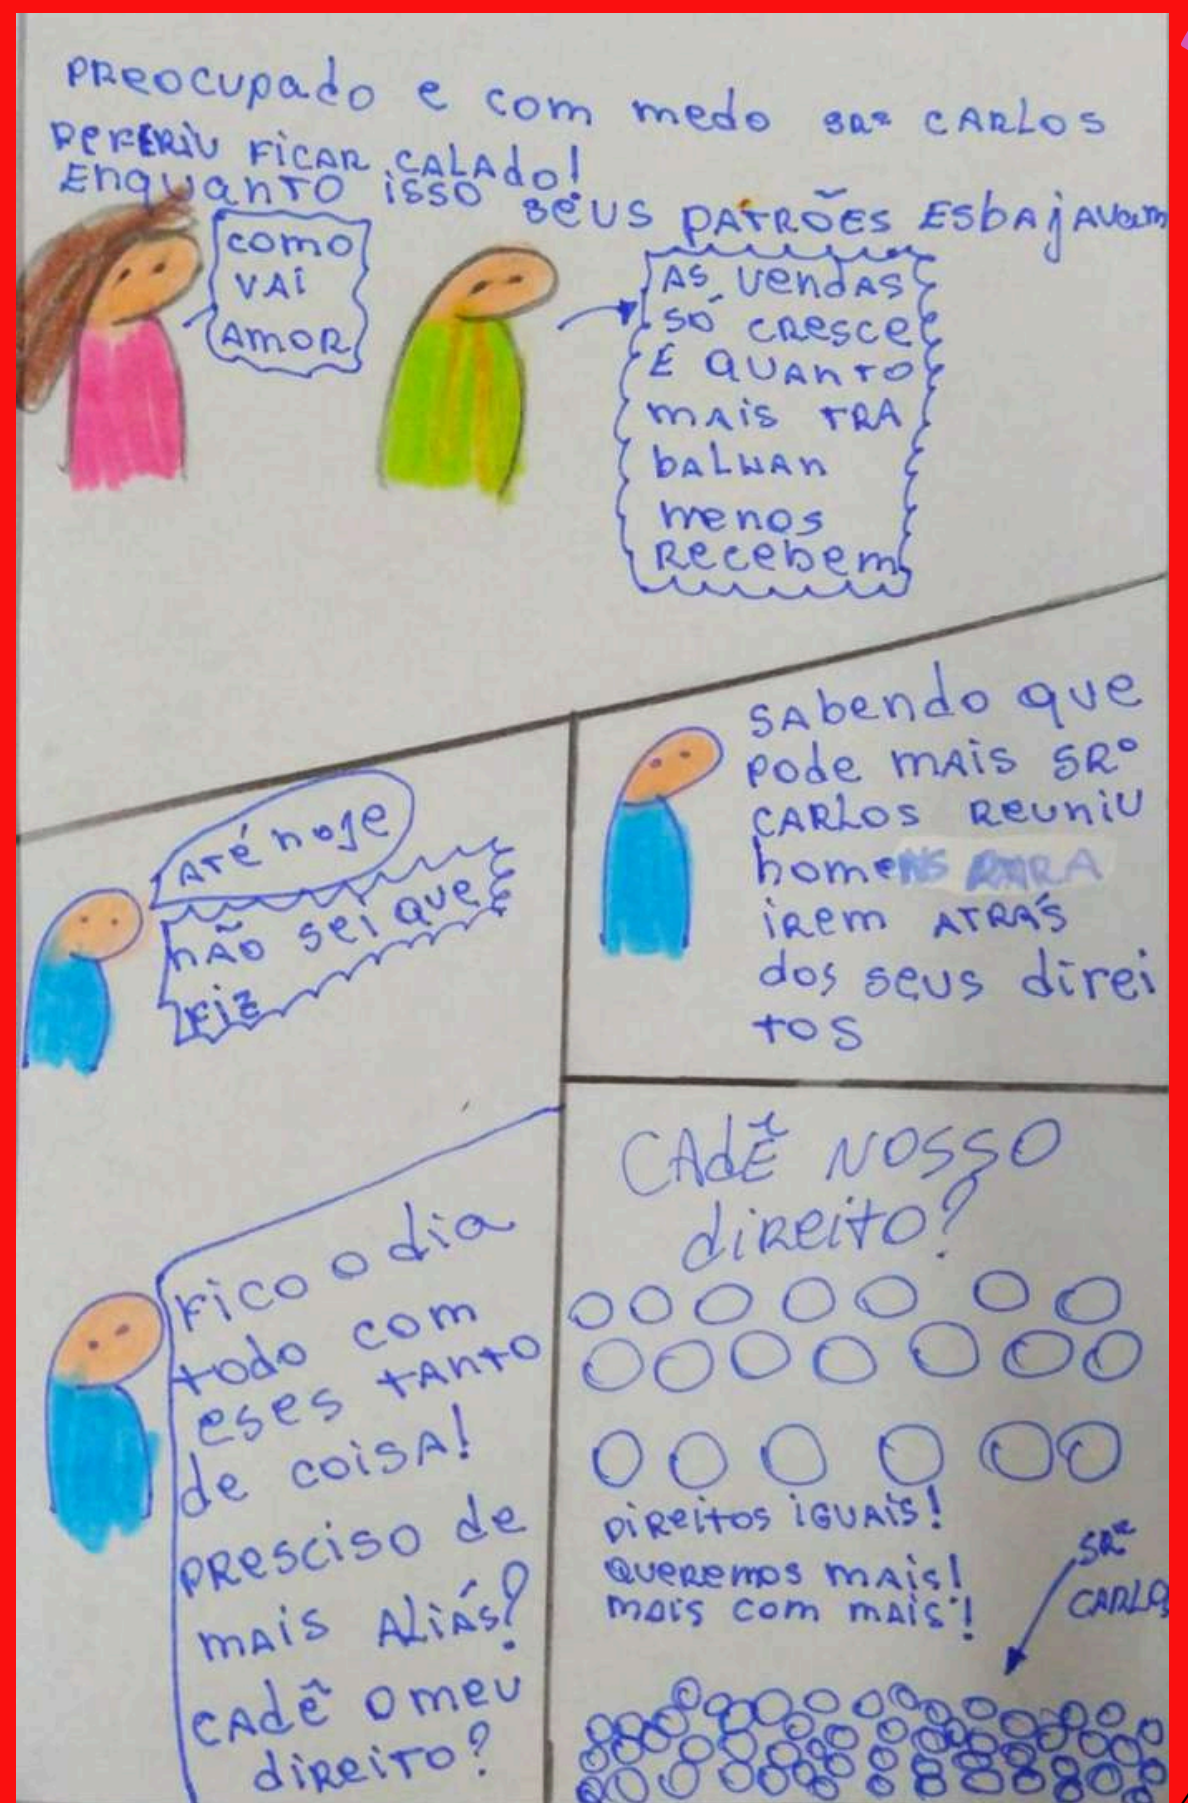 PREOCUPADO e com medo SRº CARLOS
PEFERIU FICAR CALADO!
ENQUANTO ISSO SEUS PATRÕES ESBAJAVAM
COMO
VAI
AMOR
AS VENDAS
SÓ CRESCE
E QUANTO
MAIS TRA
BALHAN
MENOS
RECEBEM
ATÉ HOJE
NÃO SEI QUE
FIZ
SABENDO que
pode MAIS SRº
CARLOS REUNIU
homeNS PARA
IREM ATRÁS
dos seus direi
TOS
FICO o dia
todo com
eses tANTO
de COISA!
PRESCISO de
MAIS ALIÁS?
CADÊ O meu
diREITO?
CADÊ NOSSO
diReito?
DIREITOS IGUAIS!
QUEREMOS MAIS!
MAIS COM MAIS!
SRº
CARLOS